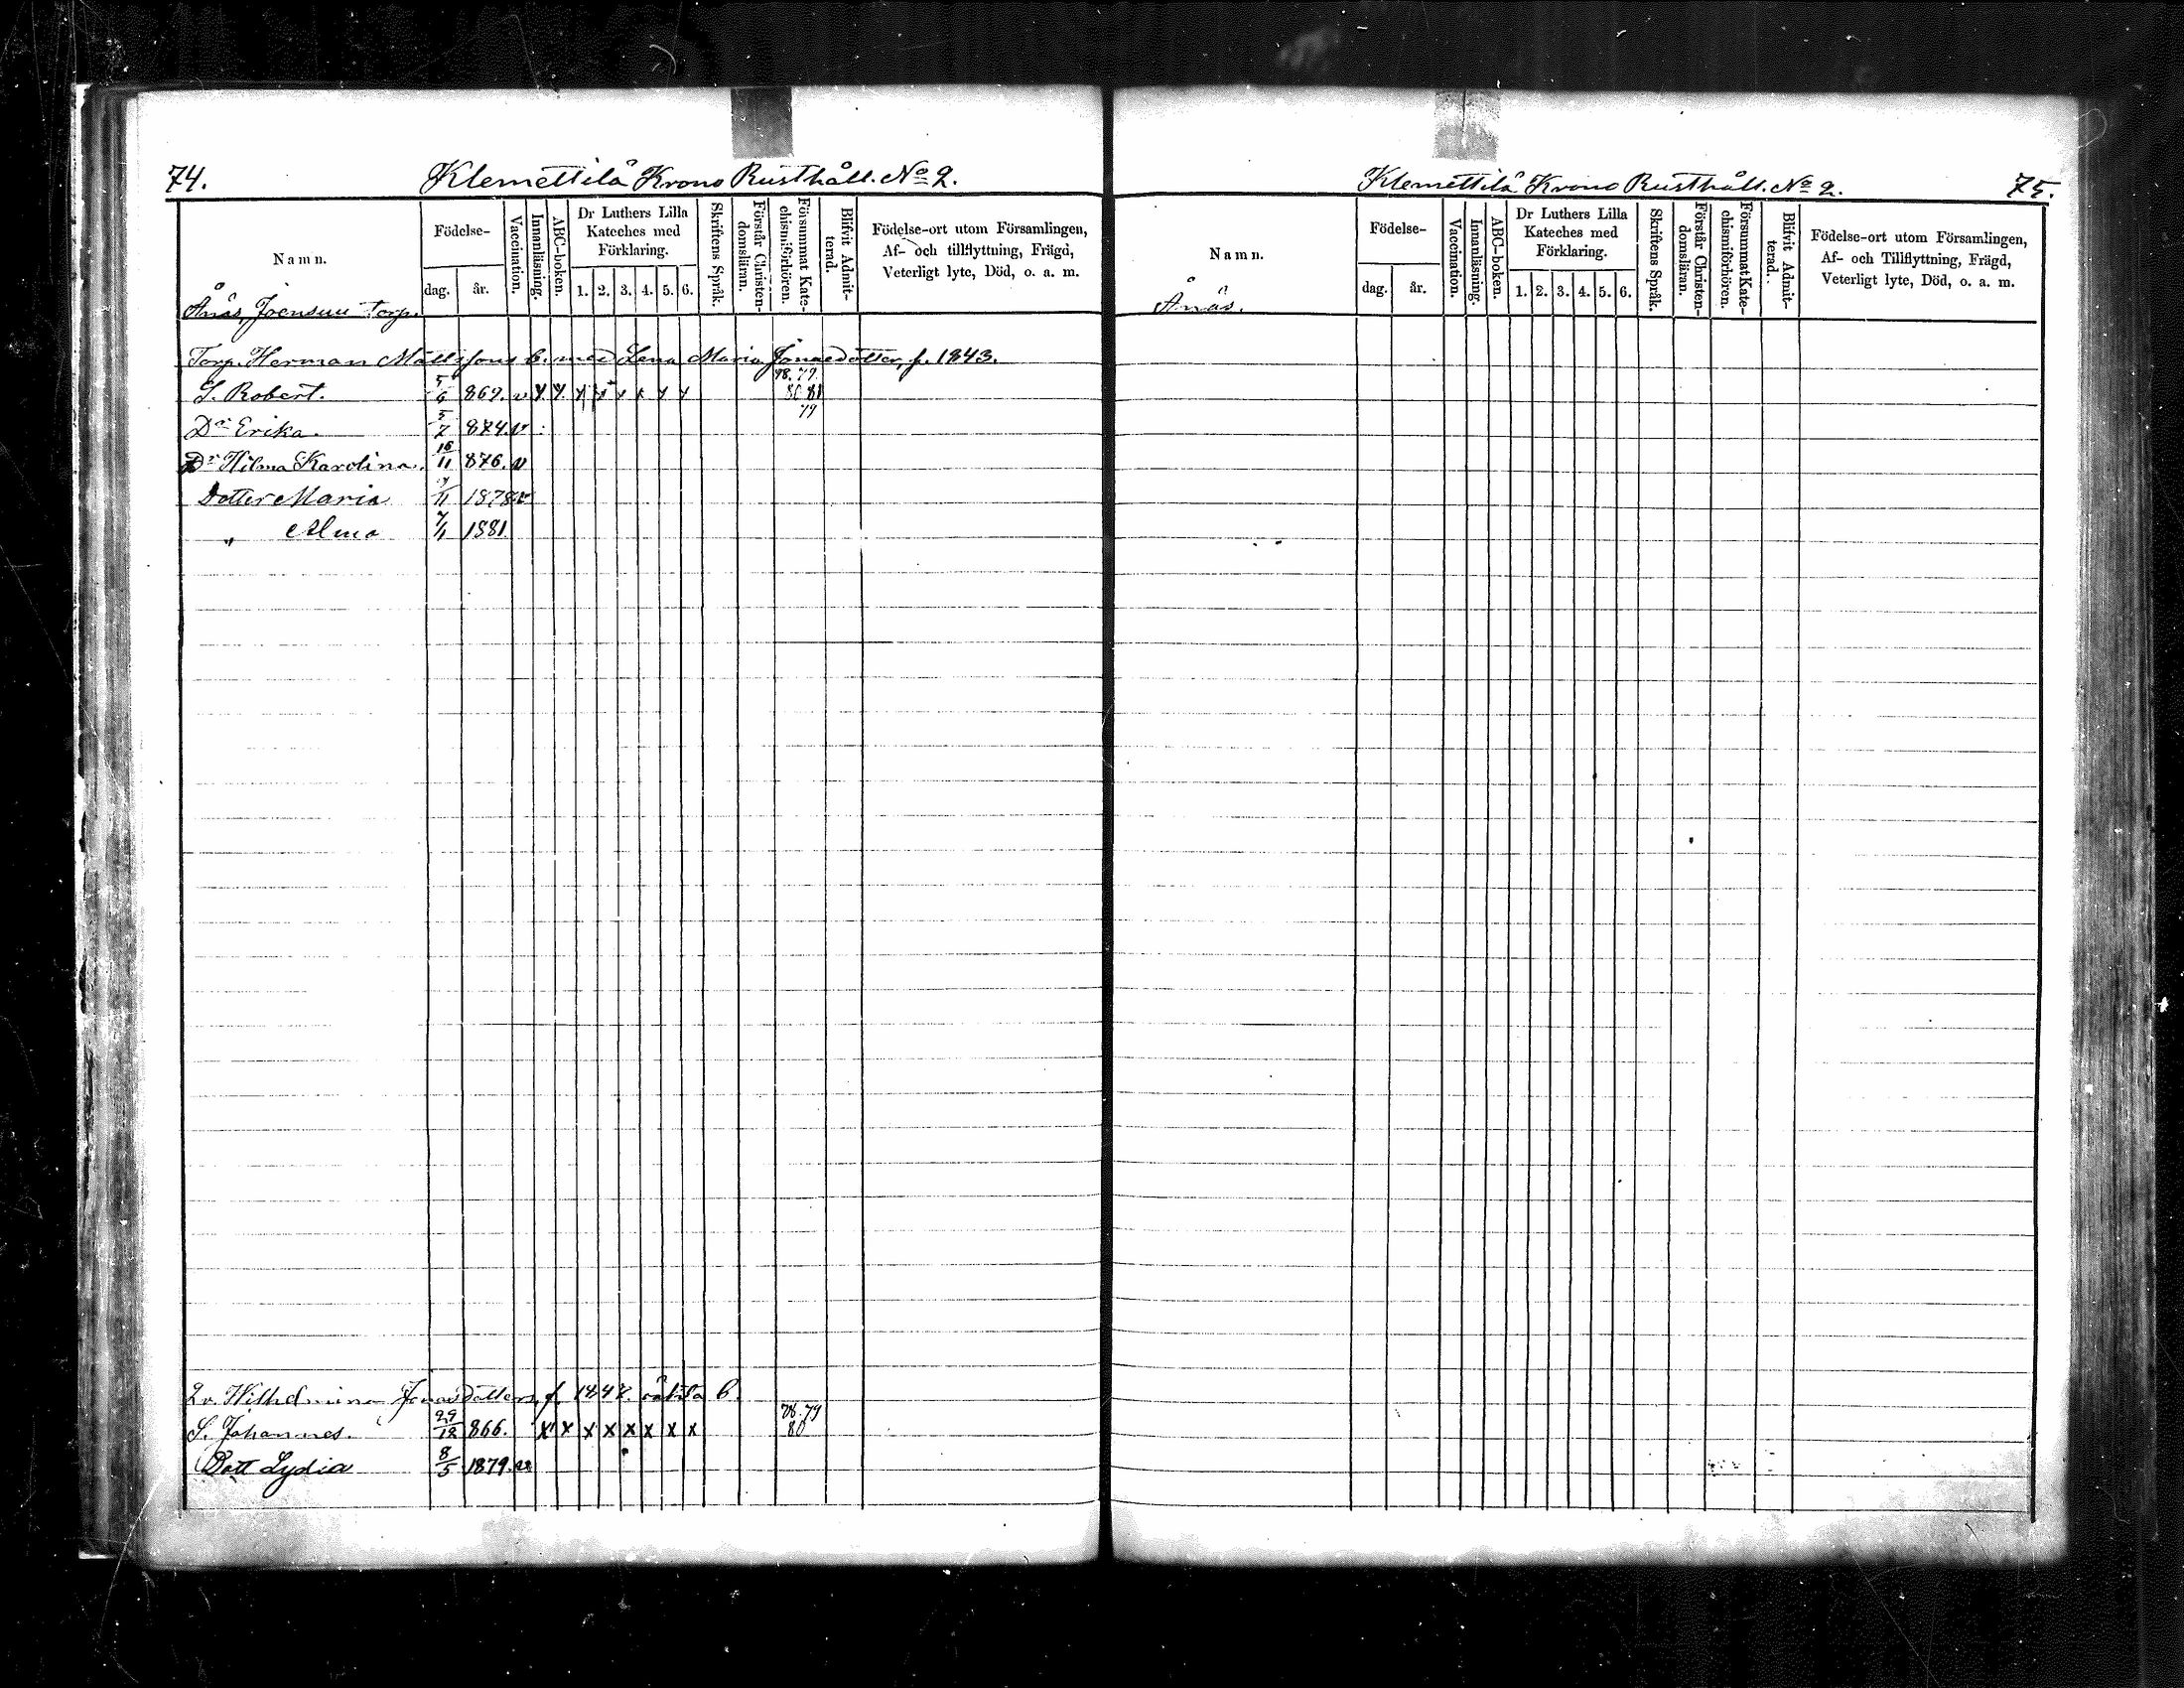 74. Klemettilä Krono Rusthåll. No 2.
Namn.
Födelse-
dag. år.
Vaccination.
Innanläsning.
ABC-boken.
Dr Luthers Lilla
Kateches med
Förklaring.
1. 2. 3. 4. 5. 6.
Skriftens Språk.
Förstår Christen-
domsläran.
Försummat Kate-
chismiförhören.
Blifvit Admit-
terad.
Födelse-ort utom Församlingen,
Af- och tillflyttning, Frägd,
Veterligt lyte, Död, o. a. m.
Ånäs, Joensuu Torp.
Torp. Herman Mattssons b. med Lena Maria Jonaedotter, f. 1843.
78. 79
S. Robert. 5/6 869. v x x x x x x x x 80 81
79
Dr Erika. 5/7 874. v
Dr Hilma Karolina. 16/11 876. v
Dotter Maria /11 1878 v
„ Alma 7/1 1881.
Qv. Wilhelmina Jonaedotters, f. 1847. oäkta b.
78. 79
S. Johannes. 29/12 866. x x x x x x x x 80
Dott Lydia 8/5 1879. v
Klemettilä Krono Rusthåll. No 2. 75.
Namn.
Födelse-
dag. år.
Vaccination.
Innanläsning.
ABC-boken.
Dr Luthers Lilla
Kateches med
Förklaring.
1. 2. 3. 4. 5. 6.
Skriftens Språk.
Förstår Christen-
domsläran.
Försummat Kate-
chismiförhören.
Blifvit Admit-
terad.
Födelse-ort utom Församlingen,
Af- och Tillflyttning, Frägd,
Veterligt lyte, Död, o. a. m.
Ånäs.